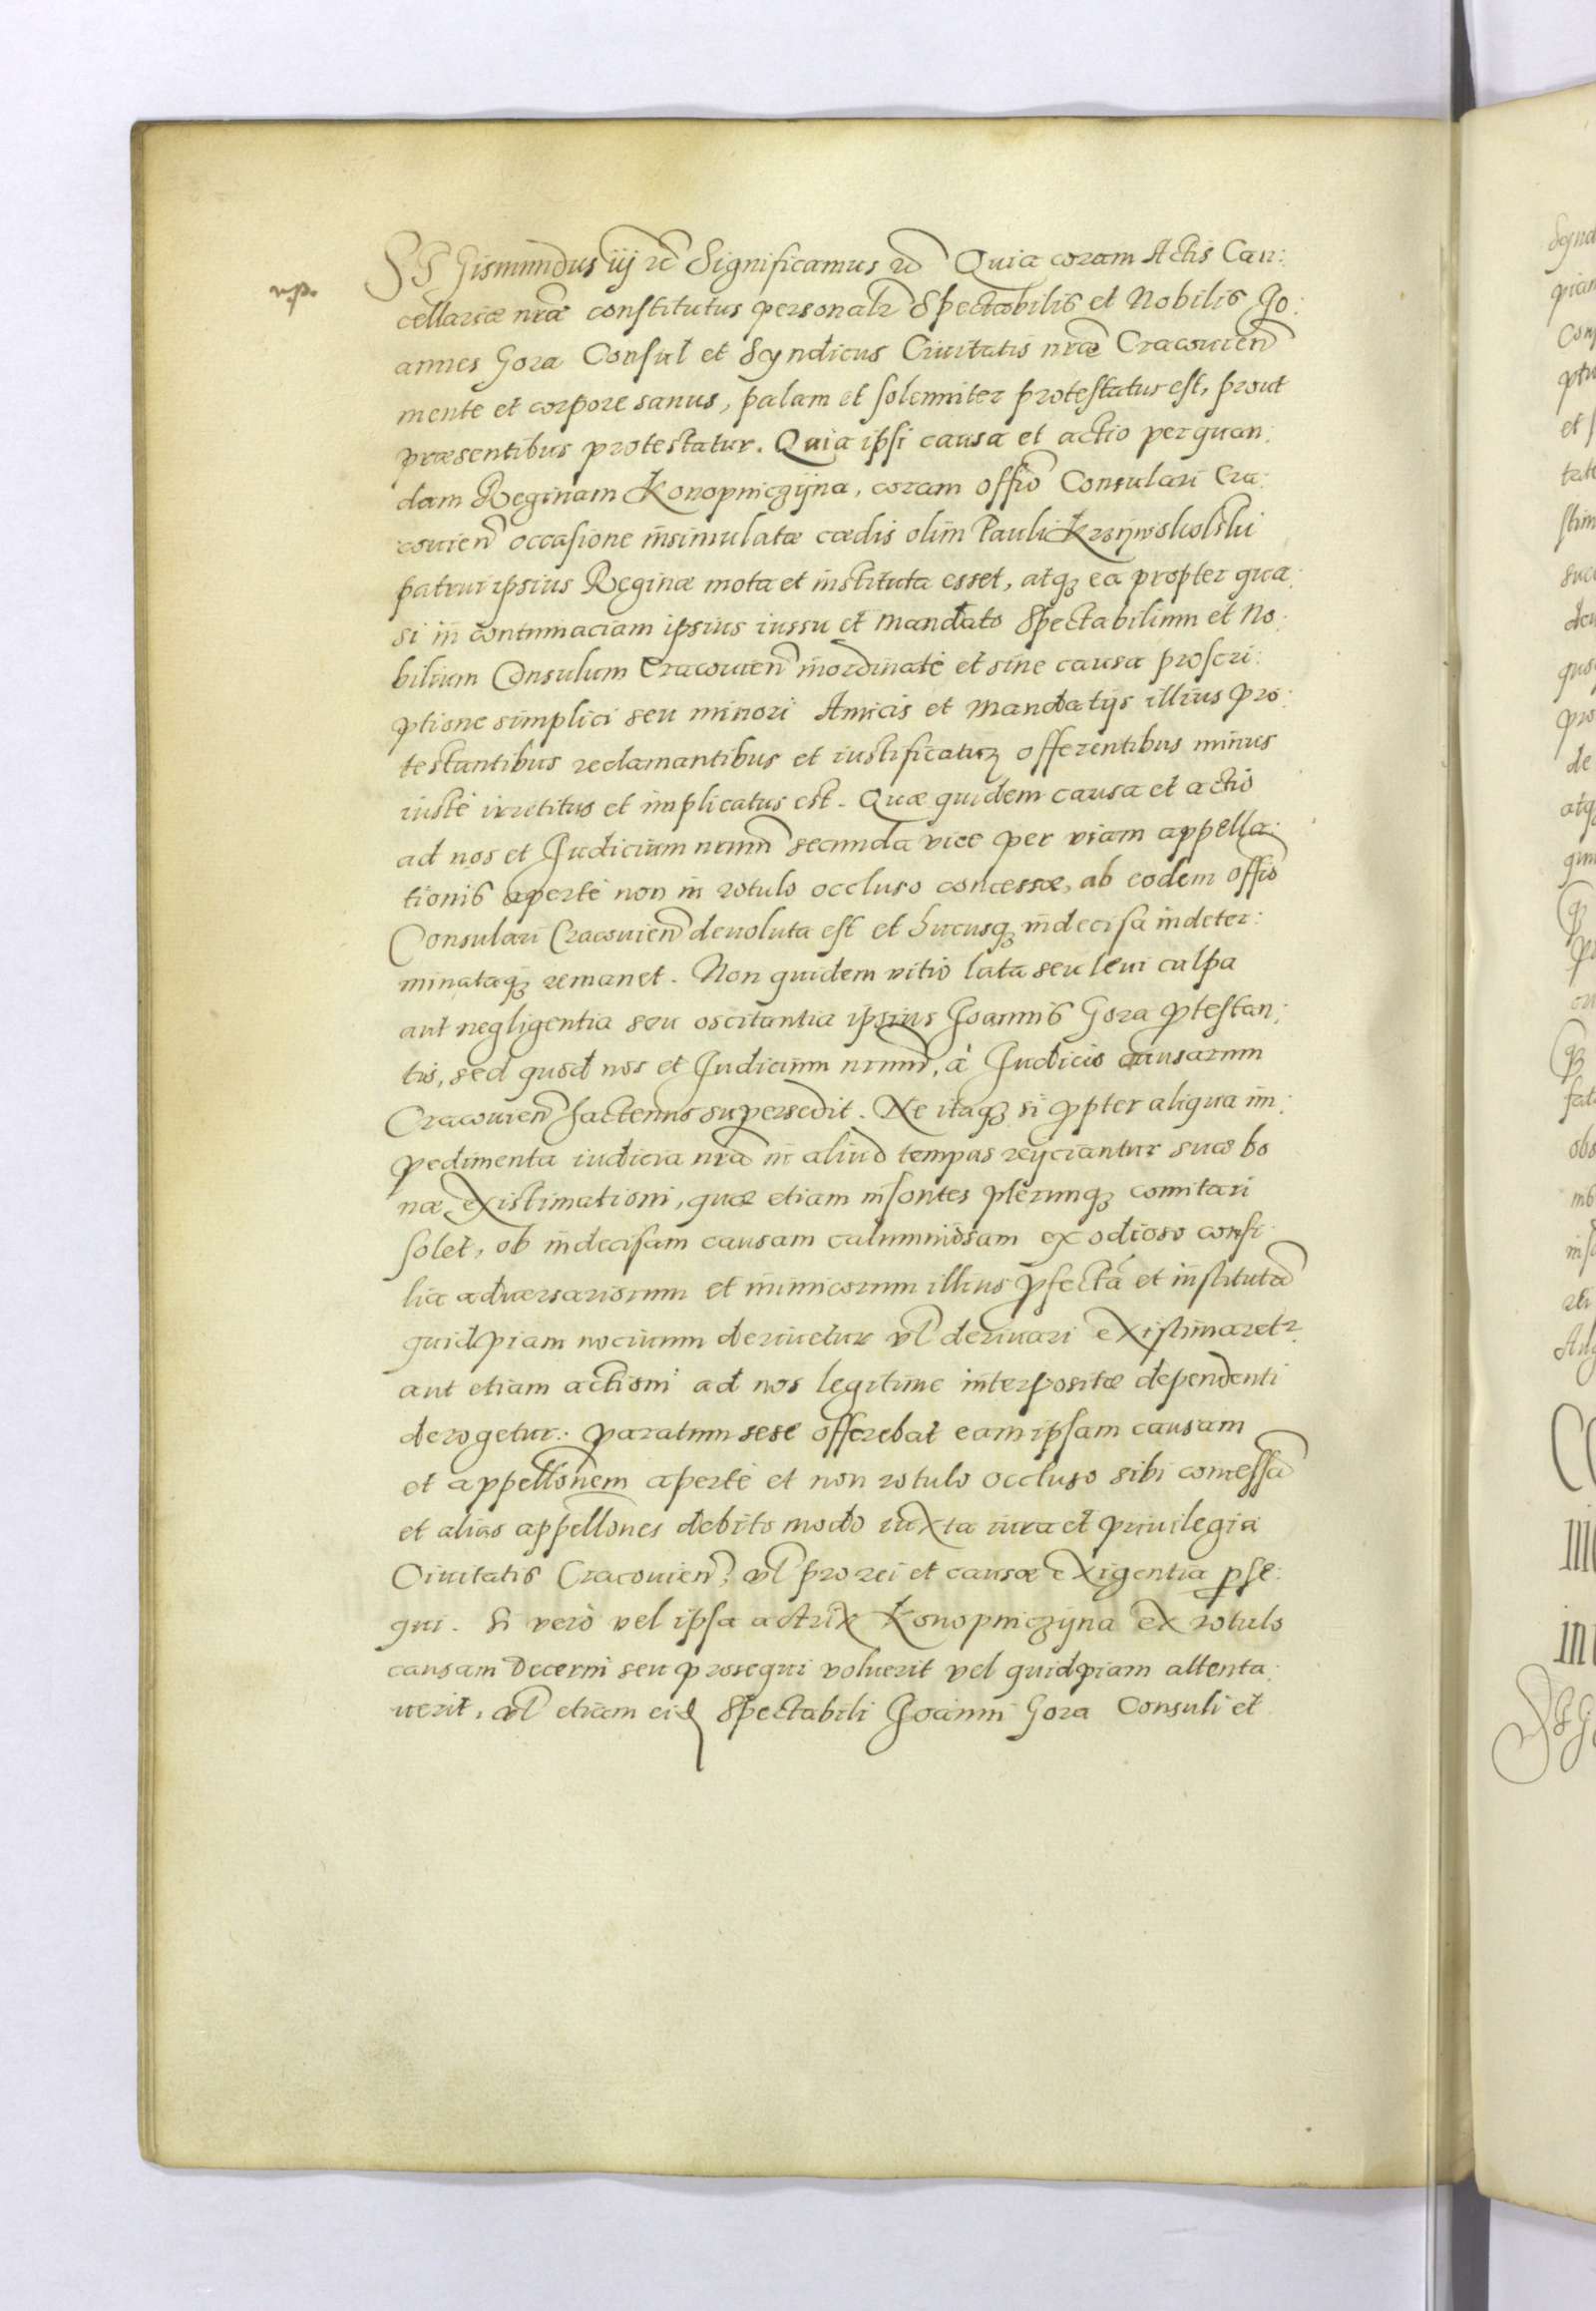 SSGismundus iij etc Significamus etc Quia coram Actis Can:
n.p.
cellariæ nræ constitutus personalr Spectabilis et Nobilis Jo:
annes Gora Consul et Syndicus Ciuitatis nræ Cracouien
mente et corpore sanus, palam et solemniter protestatus est, prout
præsentibus protestatur. Quia ipsi causa et actio per quan:
dam Reginam Konopniczÿna, coram offio Consulari Cra:
couien occasione insimulatæ cædis olim Pauli Krzÿwokolski
patrui ipsius Reginæ mota et instituta esset, atq3 ea propter qua:
si in contumaciam ipsius iussu et mandato Spectabilium et No:
bilium Consulum Cracouien inordinatè et sine causa proscri:
ptione simplici seu minori Amicis et Mandatijs illius pro:
testantibus reclamantibus et iustificatur offerentibus minus
iustè irretitus et implicatus est. Quæ quidem causa et actio
ad nos et Judicium nrum secunda vice per viam appella:
tionis apertè non in rotulo occluso concessæ, ab eodem offio
Consulari Cracouien deuoluta est et hucusq3 indecisa indeter:
minataq3 remanet. Non quidem vitio lata seu leui culpa
aut negligentia seu oscitantia ipsius Joannis Gora ptestan:
tis, sed quod nos et Judicium nrum, à Judicio causarum
Cracouien hactenus supersedit. Ne itaq3 si ppter aliqua im:
pedimenta iudicia nra in aliud tempus reijciantur suæ bo
næ existimationi, quæ etiam insontes plerunq3 comitari
solet, ob indecisam causam calumniosam ex odioso consi:
lio aduersariorum et inimicorum illius pfectá et institutá
quidpiam nociuum deriuetur vl deriuari existimaretr.
aut etiam actioni ad nos legitime interpositæ dependenti
derogetur. paratum sese offerebat eam ipsam causam
et appellonem apertè et non rotulo occluso sibi concessá
et alias appellones debito modo iuxta iura et priuilegia
Ciuitatis Cracouien, vl pro rei et causæ exigentia pse:
qui. Si verò vel ipsa actrix Konopniczÿna ex rotulo
causam decerni seu prosequi voluerit vel quidpiam attenta:
uerit, vl etiam eid Spectabili Joanni Gora Consuli et